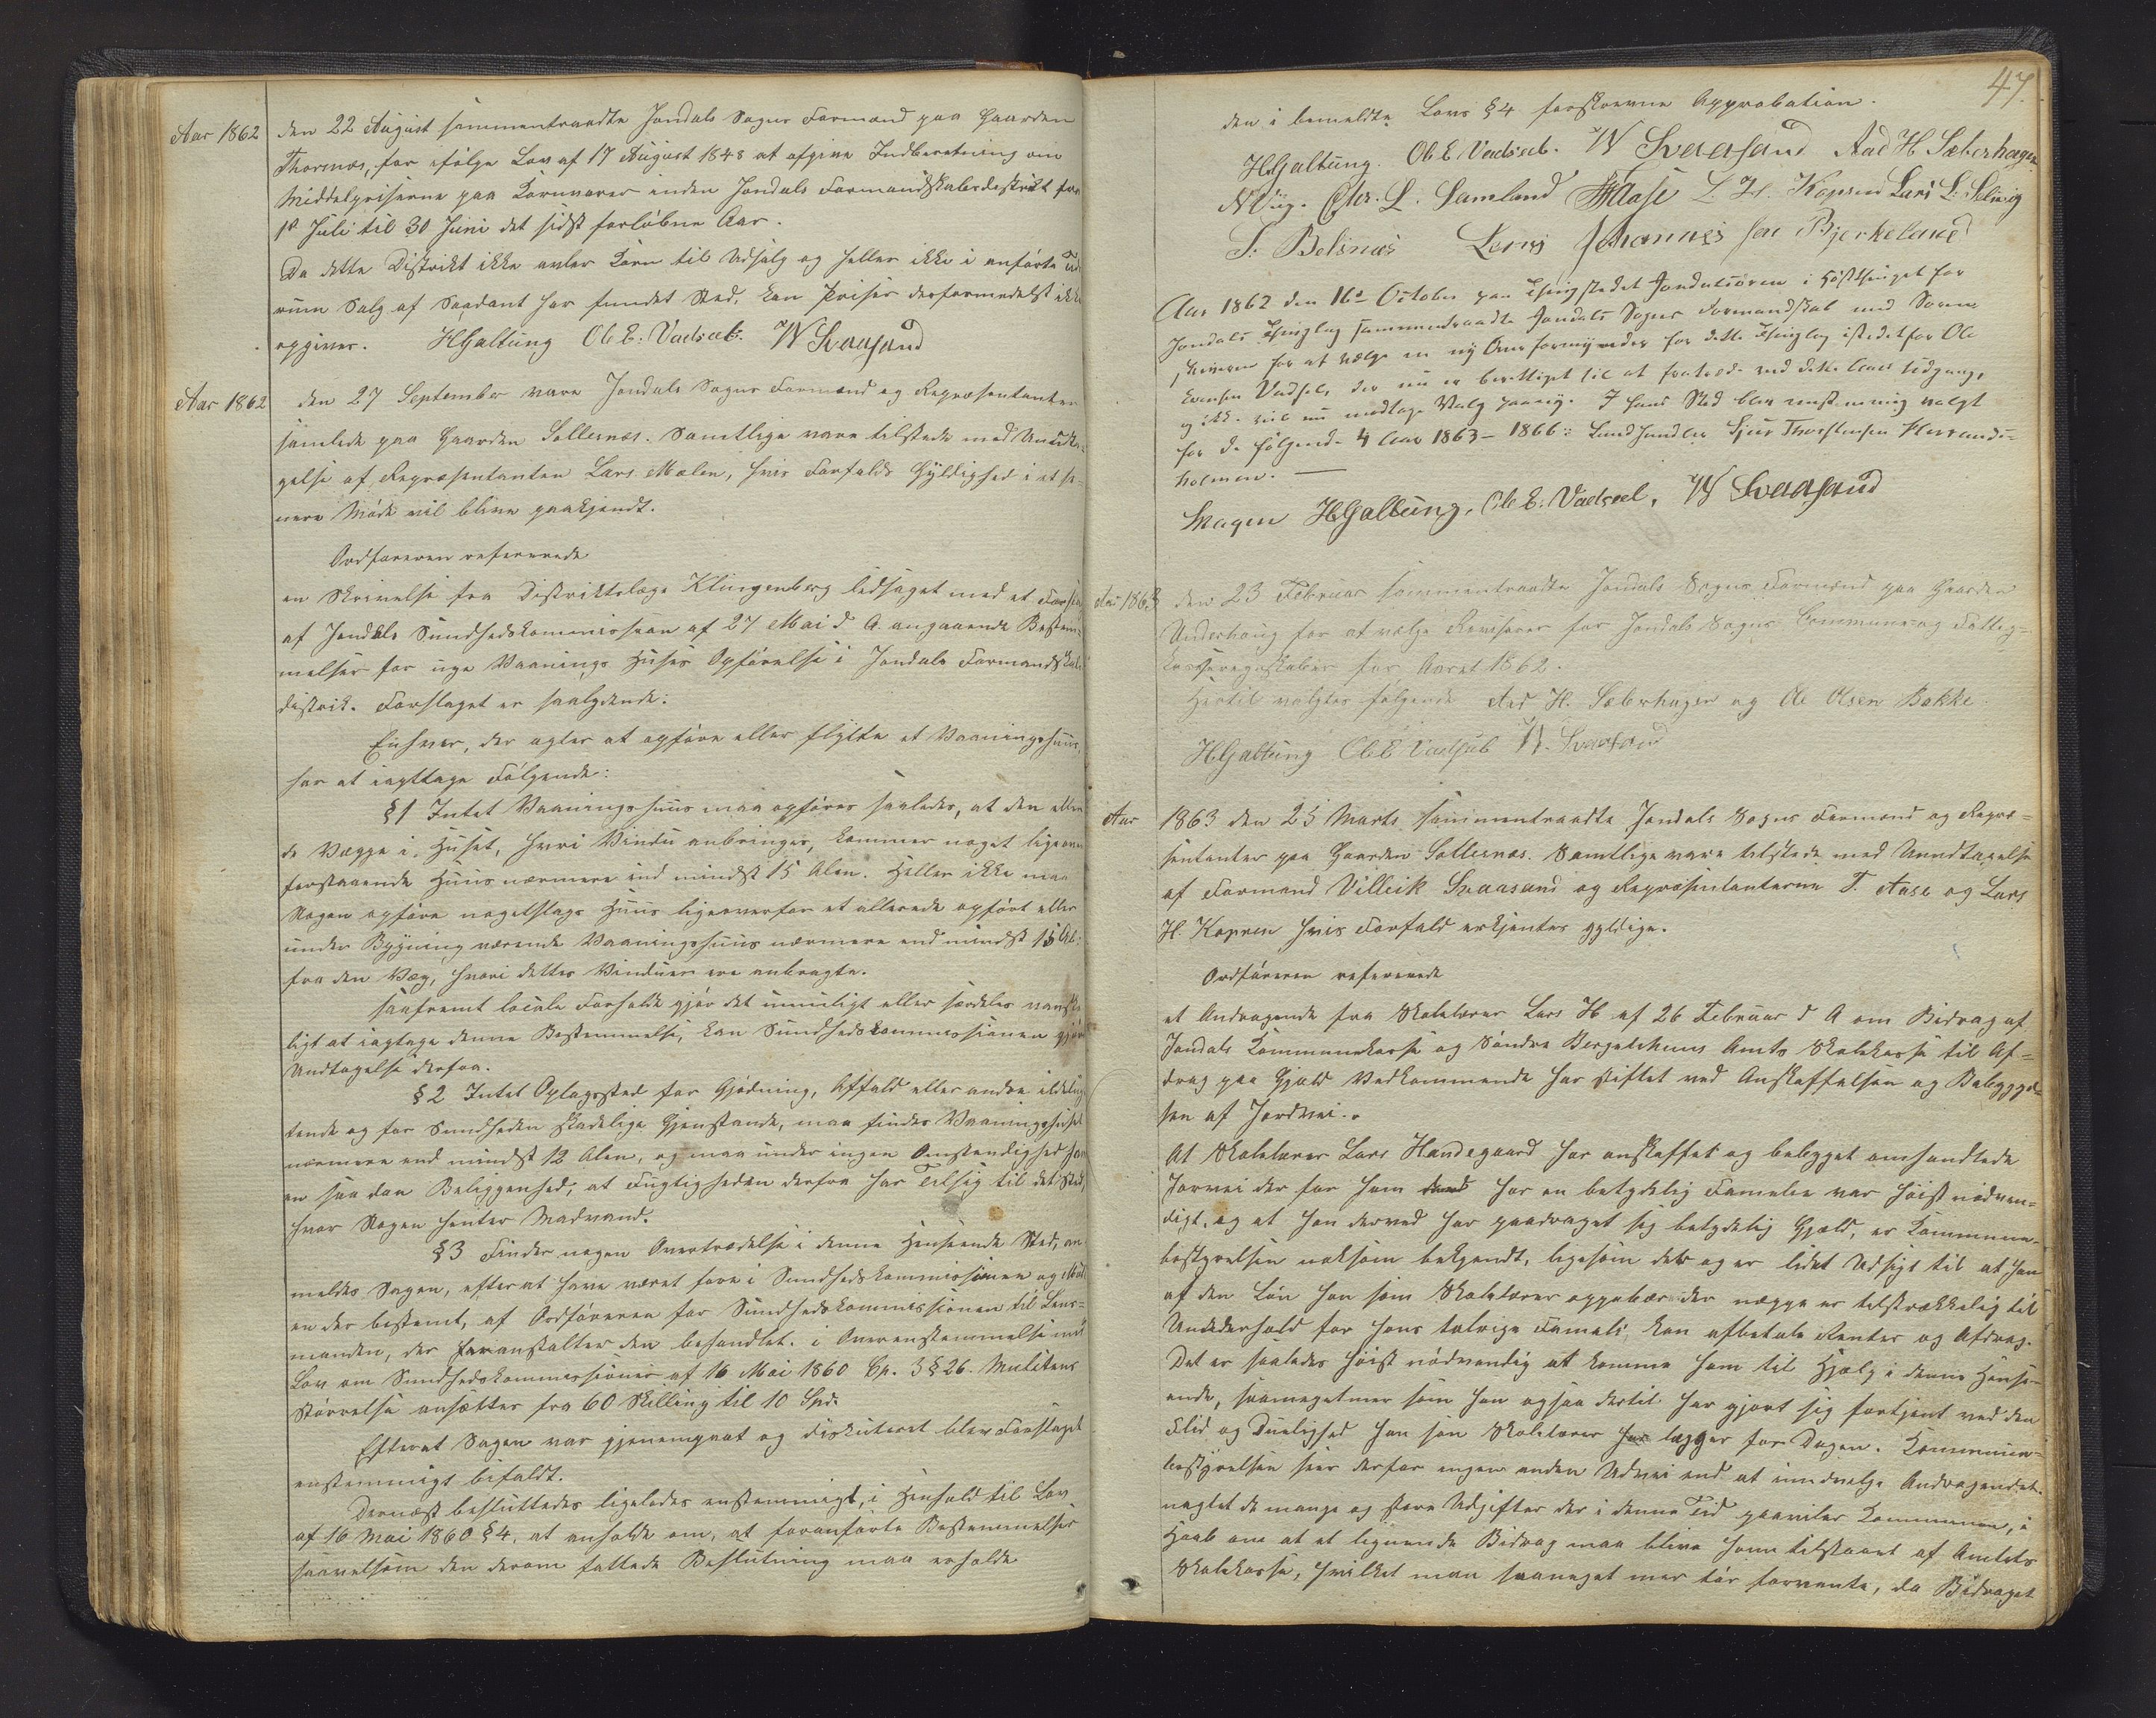 Aar 1862 den 22 August sammentraadte Jondals Sogns Formænd paa Gaarden
Thornæs, for ifølge Lov af 17 August 1848 at afgive Indberetning om
Middelpriserne paa Kornvarer inden Jondals Formandskabsdistrikt for
1st Juli til 30 Juni det sidst forløbne Aar.
Da dette Distrikt ikke avler Korn til Udsalg og heller ikke i anførte Tid
rum Salg af Saadant har fundet Sted, kan Priser desformedelst ikke
opgives. HGjaltung Ol. E. Vadsæb. W Svaasand
Aar 1862 den 27 September vare Jondals Sogns Formænd og Repræsentanter
samlede paa Gaarden Sollesnæs. Samtlige vare tilstede med Undta-
gelse af Repræsentanten Lars Mælen, hvis Forfalds Gyldighed i et se-
nere Møde vil blive paakjendt.
Ordføreren refererede
en Skrivelse fra Distriktslæge Klingenberg ledsaget med et Forslag
af Jondals Sundhedskommission af 27 Mai d A. angaaende Bestem-
melser for nye Vaanings Huses Opførelse i Jondals Formandskabs
distrik. Forslaget er saalydende:
Enhver, der agter at opføre eller flytte et Vaaningshuus,
har at iagttage Følgende:
§1 Intet Vaaningshuus maa opføres saaledes, at den eller
de Vægge i Huset, hvori Vindu anbringes, kommer noget ligeover
forstaaende Huus nærmere end mindst 15 Alen. Heller ikke maa
Nogen opføre nogetslags Huus ligeoverfor et allerede opført eller
under Bygning værende Vaaningshuus nærmere end mindst 15 Al:
fra den Væg, hvori dettes Vinduer ere anbragte.
Saafremt locale Forholde gjør det umuligt eller særdeles vanske
ligt at iagtage denne Bestemmelse, kan Sundhedskommissionen gjøre
Undtagelse derfra.
§2 Intet Oplagssted for Gjødning, Affald eller andre ildelug
tende og for Sundheden skadelige Gjenstande, maa findes Vaaningshuset
nærmere end mindst 12 Alen, og maa under ingen Omstendighed have
en saadan Beliggenhed, at Fugtigheden derfra har Tilsig til det Sted,
hvor Nogen henter Madvand.
§3 Finder nogen Overtrædelse i denne Henseende Sted, an
meldes Sagen, efter at have været fore i Sundhedskommissionen og Mul
en der bestemt, af Ordføreren for Sundhedskommissionen til Lens-
manden, der foranstalter den behandlet i Overenstemmelse med
Lov om Sundhedskommissioner af 16 Mai 1860 Cp. 3 § 26. Mulktens
Størrelse ansættes fra 60 Skilling til 10 Spd.
Efterat Sagen var gjenemgaat og diskuteret blev Forslaget
enstemmigt bifaldt.
Dernæst besluttedes ligeledes enstemmigt, i Henhold til Lov
af 16 Mai 1860 §4, at anholde om, at foranførte Bestemmelser
saavelsom den derom fattede Beslutning maa erholde
47.
den i bemeldte Lovs §4 forskrevne Approbation.
HGjaltung. Ol E. Vadsæb. W Svaasand Aad H Sæberhagen
NViig. Chr. L. Samland TAase L. H. Kopren Lars L. Selvig
T. Belsnæs Johannes Bjerkeland
Aar 1862 den 16de October paa Thingstedet Jondalsøren i Høstthinget for
Jondals Thinglag sammentraadte Jondals Sogns Formandskab med Soren
skriveren for at vælge en ny Overformynder for dette Thinglag istedetfor Ole
Vadsel, der nu er berettiget til at fratræde ved dette Aars Udgang,
og ikke vil nu modtage Valg paany. I hans Sted blev enstemmig valgt
for de følgende 4 Aar 1863-1866: Landhandler Sjur Thorstensen Herrands-
holmen.
Magen HGjaltung, Ole E. Vadsæl, W Svaasand
Aar 1863 den 23 Februar sammentraadte Jondals Sogns Formænd paa Gaarden
Underhoug for at vælge Revisorer for Jondals Sogns Commune og Fattig-
kasseregnskaber for Aaret 1862.
Hertil valgtes følgende Aad H. Sæberhagen og Ole Olsen Bakke
HGjaltung Ol E Vadsæb W. Svaasand
Aar 1863 den 25 Marts sammentraadte Jondals Sogns Formænd og Repræ-
sentanter paa Gaarden Sollesnæs. Samtlige vare tilstede med Unndtagelse
af Formand Villeik Svaasand og Repræsentanterne T. Aase og Lars
H. Kopren hvis Forfald erkjentes gyldige.
Ordføreren refererede
et Andragende fra Skolelærer Lars H af 26 Februar d A om Bidrag af
Jondals Kommunekasse og Søndre Bergenhuus Amts Skolekasse til Af-
drag paa Gjæld Vedkommende har stiftet ved Anskaffelsen og Bebyggel-
sen af Jordvei.
At Skolelærer Lars Handegaard har anskaffet og bebygget omhandlede
Jorvei der for ham har en betydelig Famelie var høist nødven-
digt, og at han derved har paadraget sig betydelig Gjæld, er Kommune-
bestyrelsen noksom bekjendt, ligesom der og er lidet Udsigt til at han
af den Løn han som Skolelærer oppebær der neppe er tilstrækkelig til
Underhold for hans talrige Fameli, kan afbetale Renter og Afdrag.
Det er saaledes høist nødvendig at komme ham til Hjælp i denne Hense-
ende, saameget mer som han ogsaa dertil har gjort sig fortjent ved den
Flid og Duelighed han som Skolelærer har lægger for Dagen. Kommune-
bestyrelsen seer derfor ingen anden Udvei end at inndvilge Andragendet
uagtet de mange og store Udgifter der i denne Tid paaviler Kommunen, i
Haab om at et lignende Bidrag maa blive ham tilstaaet af Amtets
Skolekasse, hvilket man saameget mer tør forvente, da Bidraget